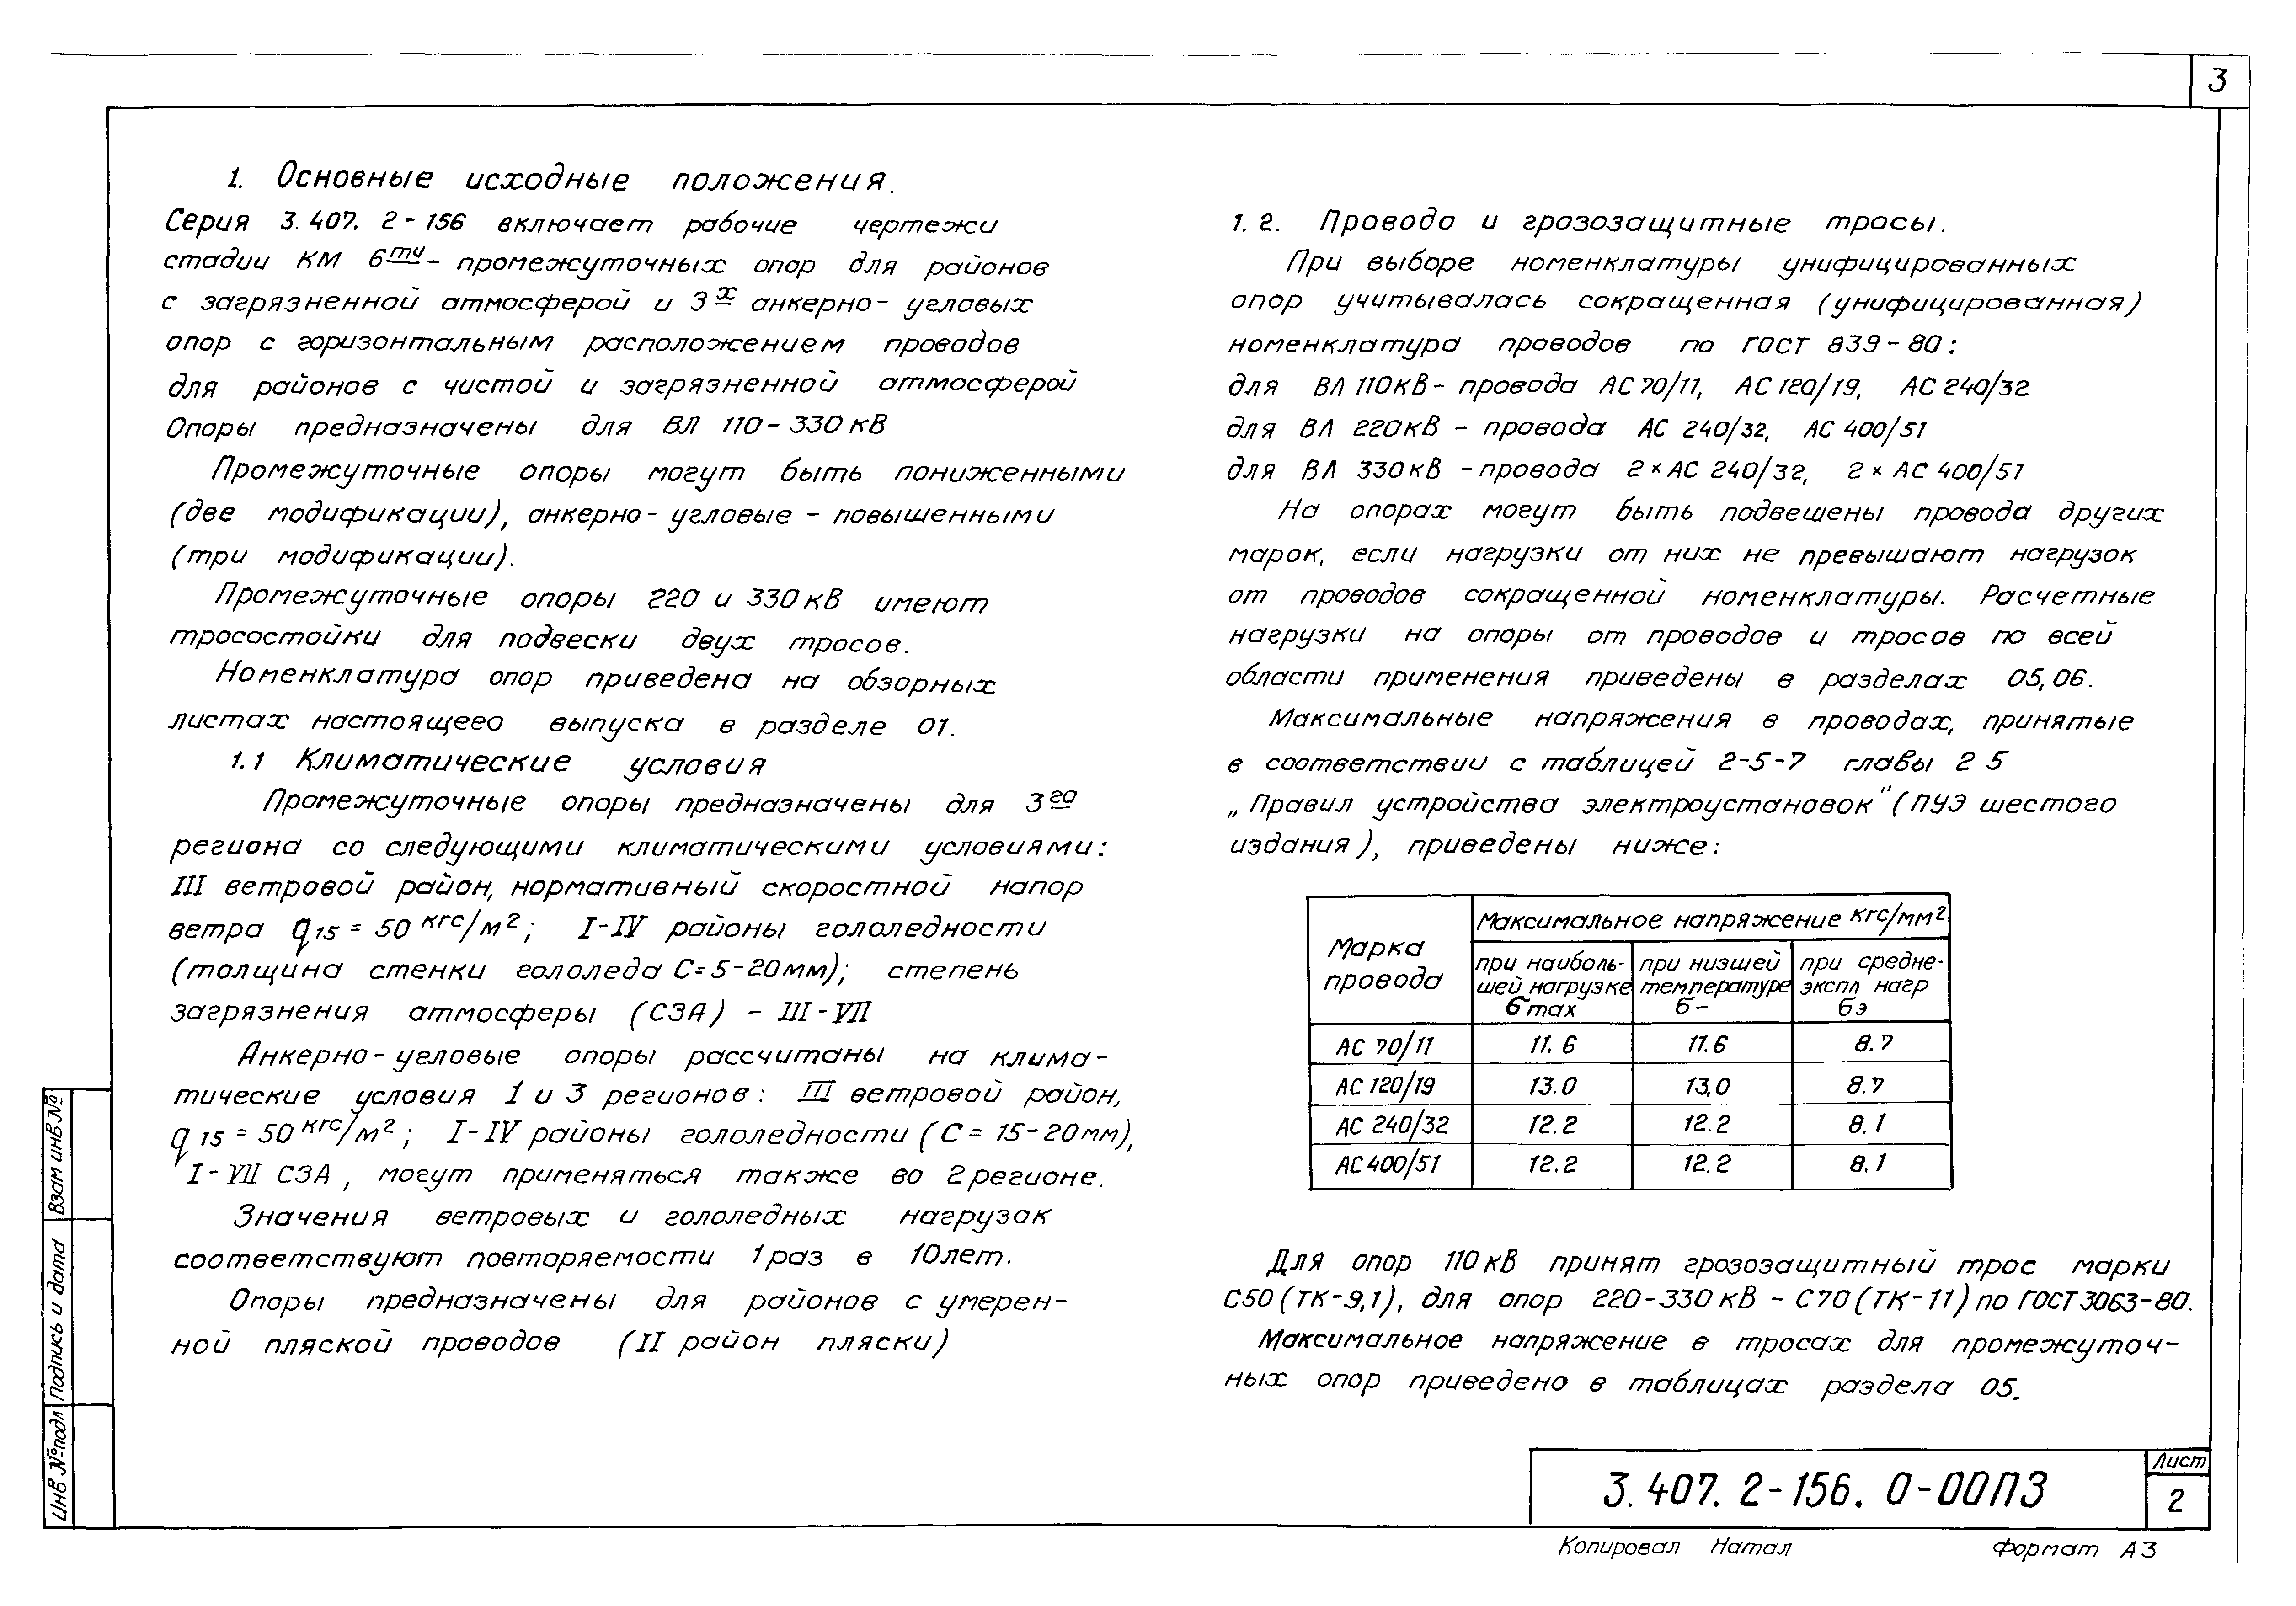 3
1. Основные исходные положения.
Серия 3.407.2-156 включает рабочие чертежи
стадии КМ 6ти - промежуточных опор для районов
с загрязненной атмосферой и 3х анкерно-угловых
опор с горизонтальным расположением проводов
для районов с чистой и загрязненной атмосферой
Опоры предназначены для ВЛ 110-330 кВ
Промежуточные опоры могут быть пониженными
(две модификации), анкерно-угловые - повышенными
(три модификации).
Промежуточные опоры 220 и 330 кВ имеют
тросостойки для подвески двух тросов.
Номенклатура опор приведена на обзорных
листах настоящего выпуска в разделе 01.
1.1 Климатические условия
Промежуточные опоры предназначены для 3го
региона со следующими климатическими условиями:
III ветровой район, нормативный скоростной напор
ветра q15 = 50 кгс/м²; I-IV районы гололедности
(толщина стенки гололеда С=5-20мм); степень
загрязнения атмосферы (СЗА) - III-VII
Анкерно-угловые опоры рассчитаны на клима-
тические условия 1 и 3 регионов: III ветровой район,
q15 = 50 кгс/м²; I-IV районы гололедности (С= 15-20мм),
I-VII СЗА, могут применяться также во 2 регионе.
Значения ветровых и гололедных нагрузок
соответствуют повторяемости 1 раз в 10 лет.
Опоры предназначены для районов с умерен-
ной пляской проводов (II район пляски)
1.2. Провода и грозозащитные трасы.
При выборе номенклатуры унифицированных
опор учитывалась сокращенная (унифицированная)
номенклатура проводов по ГОСТ 839-80:
для ВЛ 110кВ - провода АС 70/11, АС 120/19, АС 240/32
для ВЛ 220кВ - провода АС 240/32, АС 400/51
для ВЛ 330кВ - провода 2×АС 240/32, 2×АС 400/51
На опорах могут быть подвешены провода других
марок, если нагрузки от них не превышают нагрузок
от проводов сокращенной номенклатуры. Расчетные
нагрузки на опоры от проводов и тросов по всей
области применения приведены в разделах 05,06.
Максимальные напряжения в проводах, принятые
в соответствии с таблицей 2-5-7 главы 2 5
„Правил устройства электроустановок" (ПУЭ шестого
издания), приведены ниже:
Марка провода
Максимальное напряжение кгс/мм²
при наиболь-шей нагрузке бmax
при низшей температуре б-
при средне-экспл нагр бэ
АС 70/11 11.6 11.6 8.7
АС 120/19 13.0 13,0 8.7
АС 240/32 12.2 12.2 8.1
АС 400/51 12.2 12.2 8.1
Для опор 110 кВ принят грозозащитный трос марки
С50 (ТК-9,1), для опор 220-330 кВ - С70 (ТК-11) по ГОСТ 3063-80.
Максимальное напряжение в тросах для промежуточ-
ных опор приведено в таблицах раздела 05.
Взам инв №
Подпись и дата
Инв № подл
3.407.2-156.0-00ПЗ
Лист
2
Копировал Натал Формат А3